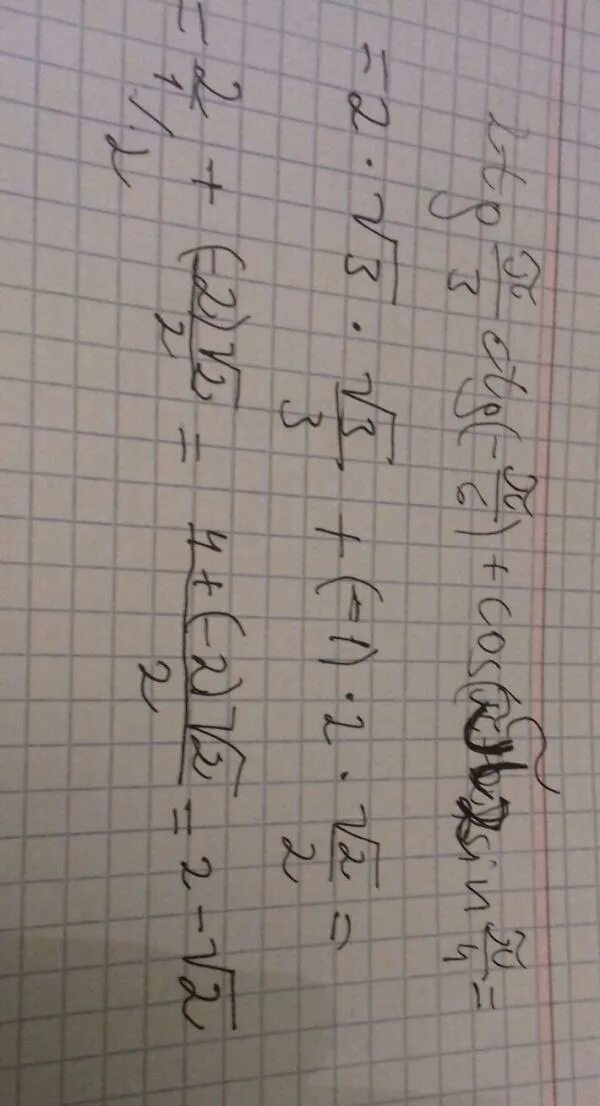 2tg π/3 ctg(-π/6) + cos π 2 sin π/4 =
= 2 · √3 · √3/3 + (-1) · 2 · √2/2 =
= 2/1 /·2 + (-2)√2/2 = 4+(-2)√2/2 = 2 - √2